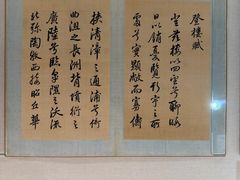 登樓賦
登茲樓以四望兮聊暇
日以銷憂覽斯宇之所
處兮實顯敞而寡儔
挾清漳之通浦兮倚
曲沮之長洲背墳衍之
廣陸兮臨皋隰之沃流
北彌陶牧西接昭丘華